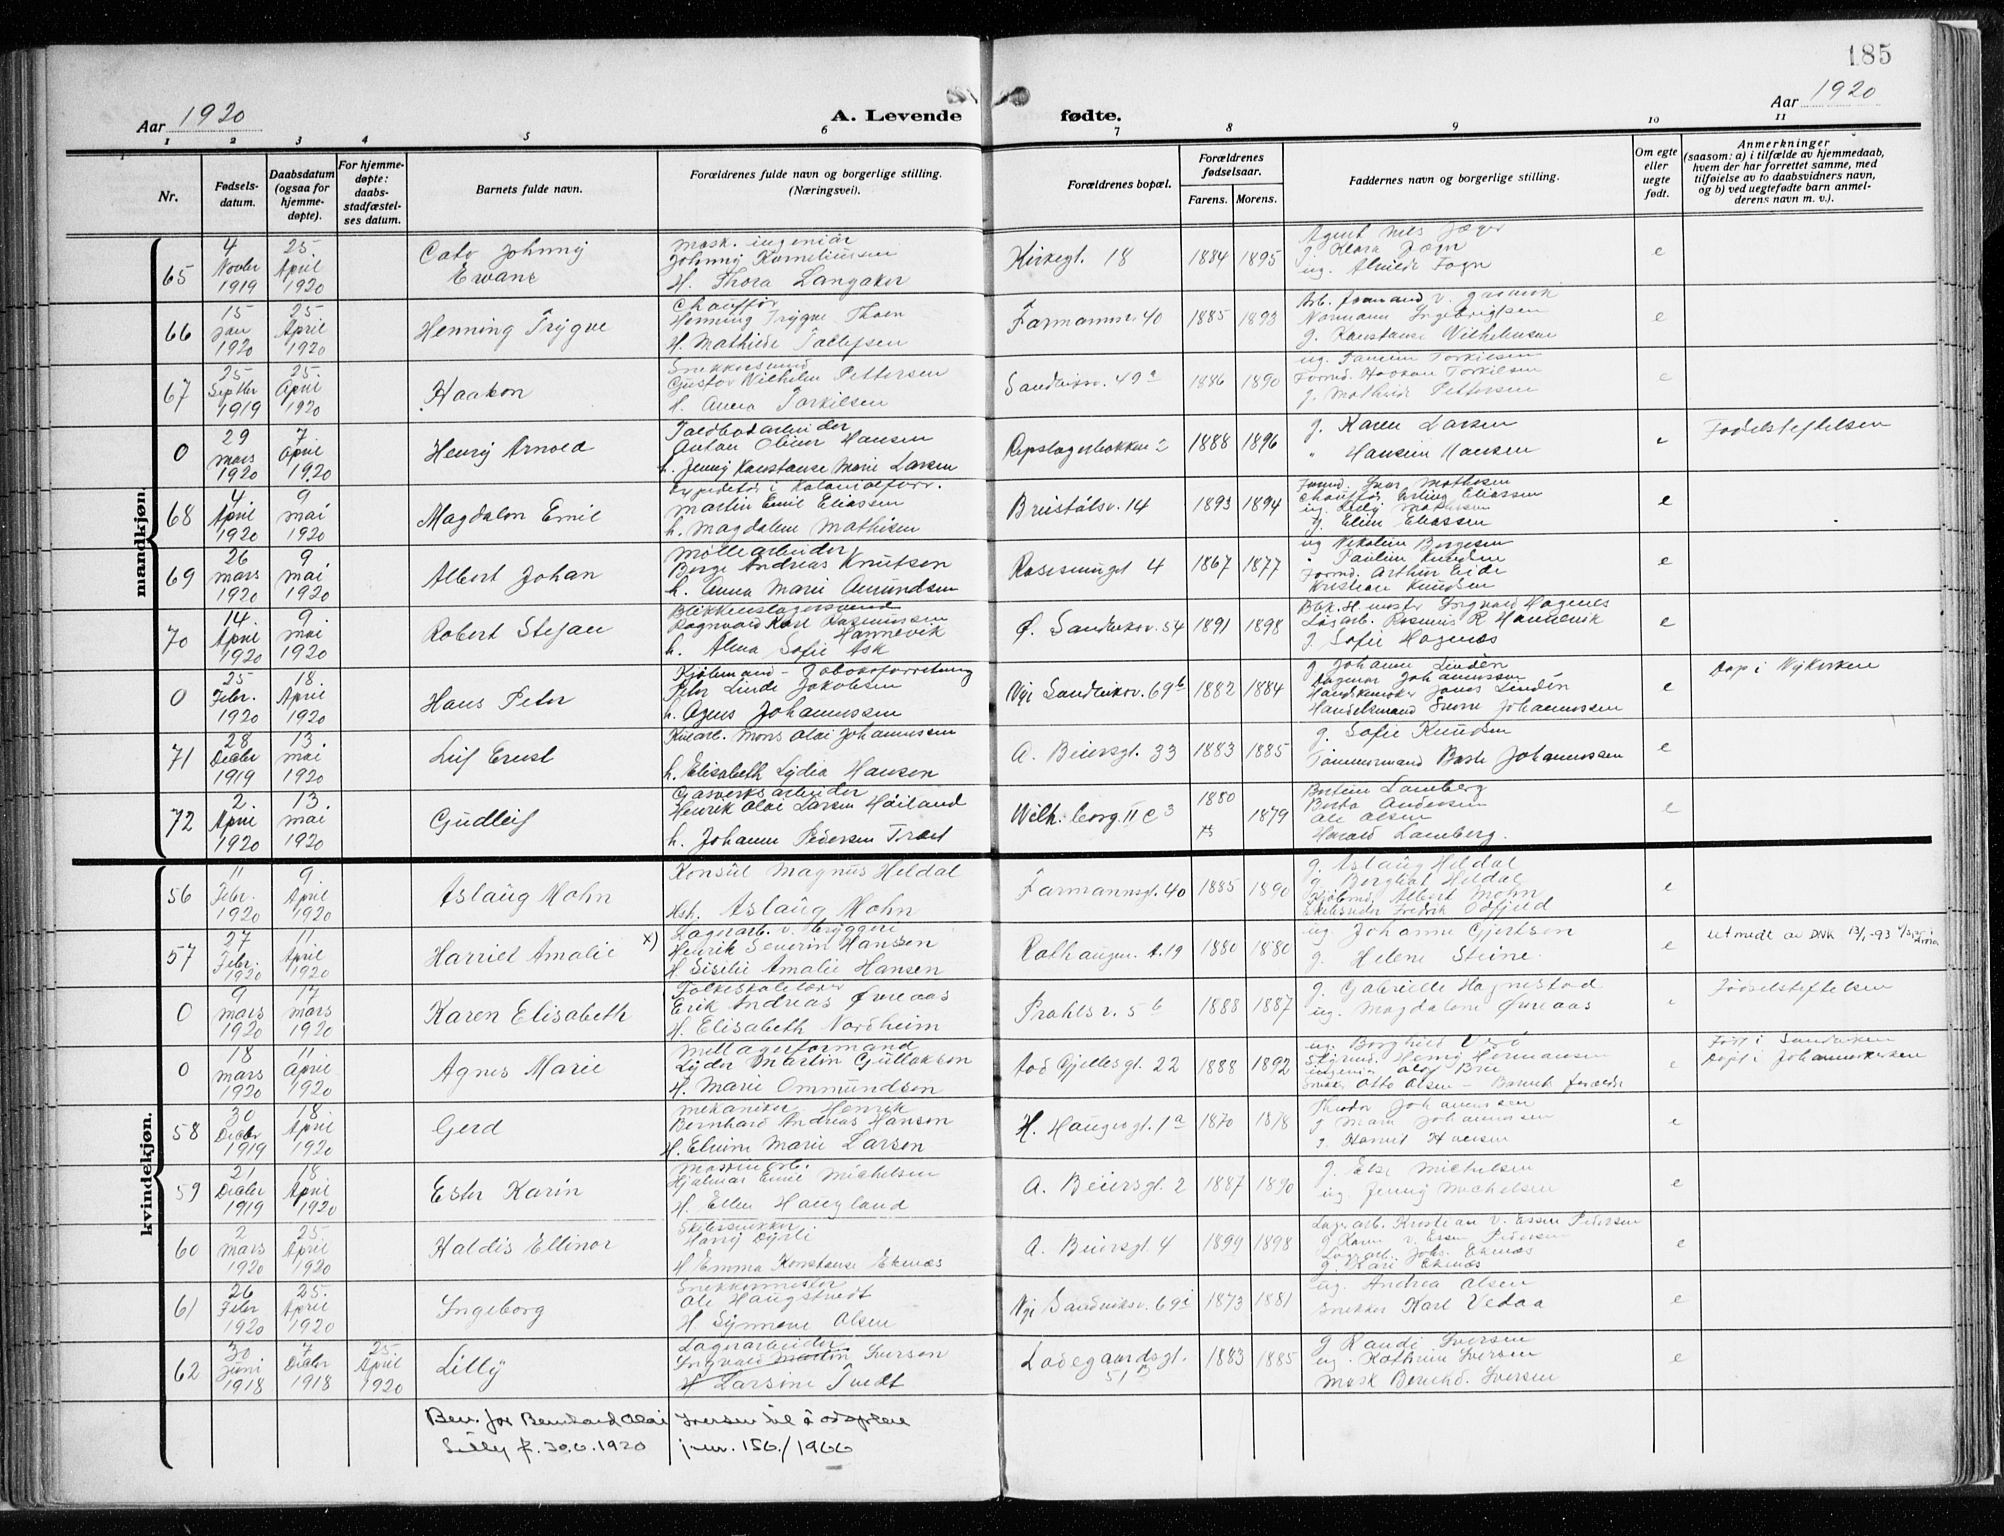 185
Aar 1920
A. Levende fødte.
Aar 1920
1 2 3 4 5 6 7 8 9 10 11
Nr.
Fødsels-
datum.
Daabsdatum
(ogsaa for
hjemme-
døpte).
For hjemme-
døpte:
daabs-
stadfæstel-
ses datum.
Barnets fulde navn.
Forældrenes fulde navn og borgerlige stilling.
(Næringsvei).
Forældrenes bopæl.
Forældrenes
fødselsaar.
Farens. Morens.
Faddernes navn og borgerlige stilling.
Om egte
eller
uegte
født.
Anmerkninger
(saasom: a) i tilfælde av hjemmedaab,
hvem der har forrettet samme, med
tilføielse av to daabsvidners navn,
og b) ved uegtefødte barn anmel-
derens navn m. v.).
mandkjøn.
65
4
Novbr
1919
25
April
1920
Cato Johnny
Ewane
Mask. ingeniør
Johnny Korneliussen
H. Thora Langaker
Kirkegt. 18
1884 1895
Agent Nils Jæger
g. Klara Jæger
ug. Alvilde Fogn
e
66
15
Jan
1920
25.
April
1920
Henning Trygve
Chauffør
Henning Trygve Thoen
H. Mathilde Tollefsen
Farmannsv. 40
1885 1893
Normann Ingebrigtsen
g. Konstanse Vilhelmsen
e
67
25
Septbr
1919
25.
April
1920
Haakon
Snekkersvend
Gustav Wilhelm Pettersen
h. Anna Torkilsen
Sandviksv. 49a
1886 1890
Formd. Haakon Torkilsen
g. Mathilde Pettersen
e
0
29
Mars
1920
7
April
1920
Henry Arnold
Anton Oliver Hansen
h. Jenny Konstanse Marie Larsen
Repslagerbakken 2
1888 1896
g. Karen Larsen
" Hansine Hansen
e
Fødselstiftelsen
68
4.
April
1920
9
Mai
1920
Magdalon Emil
Expeditør i Kolonialforr.
Martin Emil Eliassen
h. Magdalene Mathisen
Breistølsv. 14
1893 1894
Formd. Ivar Mathisen
Chauffør Erling Eliassen
ug. Lilly Mathisen
g. Eline Eliassen
e
69
26
Mars
1920
9
Mai
1920
Albert Johan
Møllearbeider
Berge Andreas Knutsen
h. Anna Marie Amundsen
Rosesmuget 4
1867 1877
ug Nikoline Borgesen
" Pauline Knudsen
Formd. Arthur Eide
Kristian Knudsen
e
70
14.
April
1920
9.
Mai
1920
Robert Stefan
Blikkenslagersvend
Ragnvald Karl Rasmussen
Hannevik
h. Alma Sofie Ask
Ø. Sandviksv. 54
1891 1898
Løsarb. Rasmus R Hannevik
g. Sofie Hagenæs
e
0
25
Febr.
1920
18.
April
1920
Hans Peter
Kjøbmand - Tobaksforretning
Peter Linde Jakobsen
h. Agnes Johannessen
Nye Sandviksv. 69b
1882 1884
g Johanne Lindén
Dagmar Johannessen
Handskemaker Jonas Lindén
Handelsmand Sverre Johannessen
e
Døp i Nykirken
71
28
Decbr
1919
13.
Mai
1920
Leif Ernst
Mons Olai Johannessen
h. Elisabeth Lydia Hansen
A. Beiersgt. 33
1883 1885
g. Sofie Knudsen
Tømmermand Johannessen
e
72
2.
April
1920
13.
Mai
1920
Gudleif
Gasverksarbeider
Henrik Olai Larsen Høiland
h. Johanne Pedersen Træt
Wilh. borg II C 3
1880 1879
Berta Andersen
Ole Olsen
Harald Lamberg.
e
kvindekjøn.
56
11
Febr.
1920
9
April
1920
Aslaug Mohn
Konsul Magnus Heldal
Hsh. Aslaug Mohn
Farmannsgt. 40
1885 1890
g. Aslaug Heldal
g Borghild Heldal
Kjøbmd. Albert Mohn
Skibsreder Fredrik Odfjeld
e
57
27
Febr.
1920
11
April
1920
Harriet Amalie x)
Lagerarb. v. bryggeri
Henrik Severin Hanssen
H. Siselie Amalie Hansen
Rothaugen A. 19
1880 1880
ug. Johanne Gjertsen
g Helene Steine
e
Utmedt av DNK 13/1-93
0
9
Mars
1920
17
Mars
1920
Karen Elisabeth
Folkeskolelærer
Erik Andreas Øvreaas
H. Elisabeth Nordheim
Prahlsv. 5b
1888 1887
g. Gabrielle Hagnestad
ug. Magdalene Øvreaas
e
Fødselstiftelsen
0
18
Mars
1920
11
April
1920
Agnes Marie
Lyder Martin Gullaksen
H. Marie Ommundsen
Aad Gjellesgt 22
1888 1892
ug. Borghild Verø
Henry Hermansen
ingeniør Olaf Brei
Snekker Otto Olsen - Barnets forældre
e
Født i Sandviken
Døpt i Johanneskirken
58
30
Decbr
1919
18
April
1920
Gerd
Mekaniker Henrik
Bernhard Andreas Hanson
H. Elvine Marie Larsen
H. Haugesgt. 1a
1870 1878
Theodor Johannessen
g Marie Johannessen
g. Harriet Hansen
e
59
21
Decbr
1919
18
April
1920
Ester Karin
Maskinarb.
Hjalmar Emil Michelsen
H. Ellen Haugland
A. Beiersgt. 2
1887 1890
g. Else Michelsen
ug. Jenny Michelsen
e
60
2
Mars
1920
25
April
1920
Haldis Ellinor
Skibssnekker
Harry Dyrli
H Emma Konstanse Ekenæs
A. Beiersgt. 4
1899 1898
Lagerarb. Kristian v. Essen Pedersen
g Karen v. Essen Pedersen
Lagerarb. Johs. Ekenæs
g. Kari Ekenæs
e
61
26
Febr
1920
25.
April
1920
Ingeborg
Snekkermester
Ole Haugstvedt
H Synnøve Olsen
Nye Sandviksv. 69i
1873 1881
ug. Andrea Olsen
Snekker Karl Vedaa
e
62
30
Juni
1918
7
Decbr
1918
25.
April
1920
Lilly
Lagerarbeider
Ingvald Martin Iversen
H Larsine Tvedt
Ladegaardsgt.
51 B
1883 1885
g Randi Iversen
ug. Kathrine Iversen
Mask Bernhd. Iversen
e
Bev. for Bernhard Olai Iversen til å adoptere
Lilly f. 30.6.1920 j.nr. 150./1966